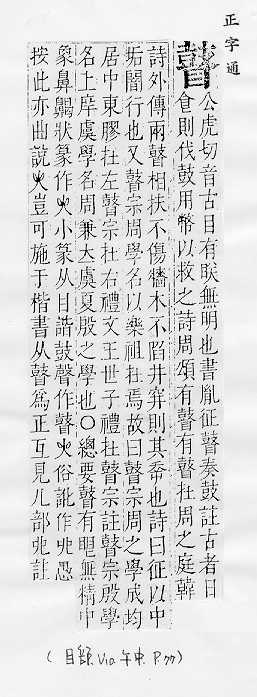 正字通
瞽 公虎切音古目有眹無明也書胤征瞽奏鼓註古者日
食則伐鼓用幣以救之詩周頌有瞽有瞽在周之庭韓
詩外傳兩瞽相扶不傷牆木不陷井穽則其幸也詩曰征以中
垢闇行也又瞽宗周學名以樂祖在焉故曰瞽宗周之學成均
居中東膠在左瞽宗在右禮文王世子禮在瞽宗註瞽宗殷學
名上庠虞學名周兼大虞夏殷之學也○總要瞽有無精中
象鼻齃狀篆作小篆从目諧鼓聲作瞽俗訛作愚
按此亦曲說豈可施于楷書从瞽爲正互見儿部註
(目部. via 午中. P.77)